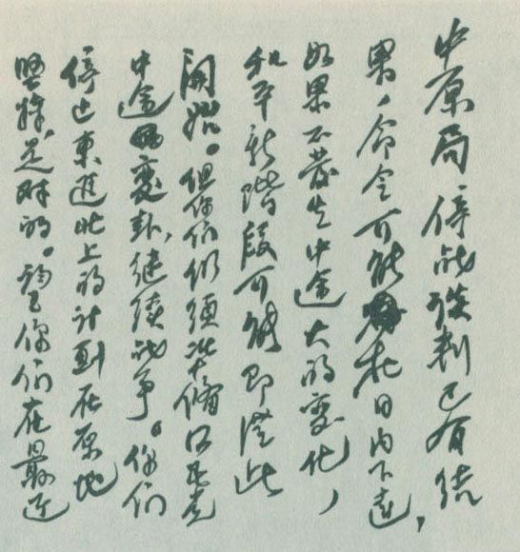 中原局停战谈判已有结
果,命令可能在日内下达,
如果不發生中途大的变化,
和平新階段可能即從此
開始。但你们仍须准備国民党
中途變卦,继续战争。你们
停止東進北上的计划在原地
坚持,是对的。望你们在最近